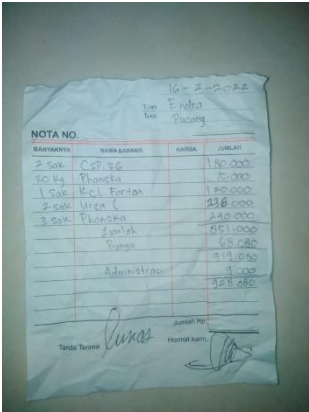 16-2-2022
Tuan Endra
Toko Pucang
NOTA NO.
BANYAKNYA NAMA BARANG HARGA JUMLAH
2 sak CSP.36 180.000
30 kg Phonska 75.000
1 sak KCL Fertan 120.000
2 sak Urea 236.000
3 sak Phonska 240.000
Jumlah 851.000
Bunga 68.080
919.080
Administrasi 9.000
928.080
Jumlah Rp.
Tanda Terima Lunas Hormat kami,